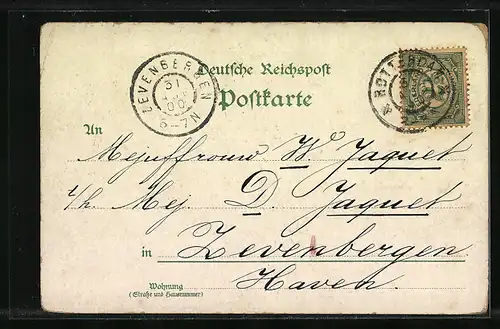 Deutsche Reichspost
Postkarte
ZEVENBERGEN
31
00
6-7N
ROTTERDAM
An
Mejuffrouw W. Jaquet
t/h. Mej. D. Jaquet
in Zevenbergen
Haven.
Wohnung
(Straße und Hausnummer)